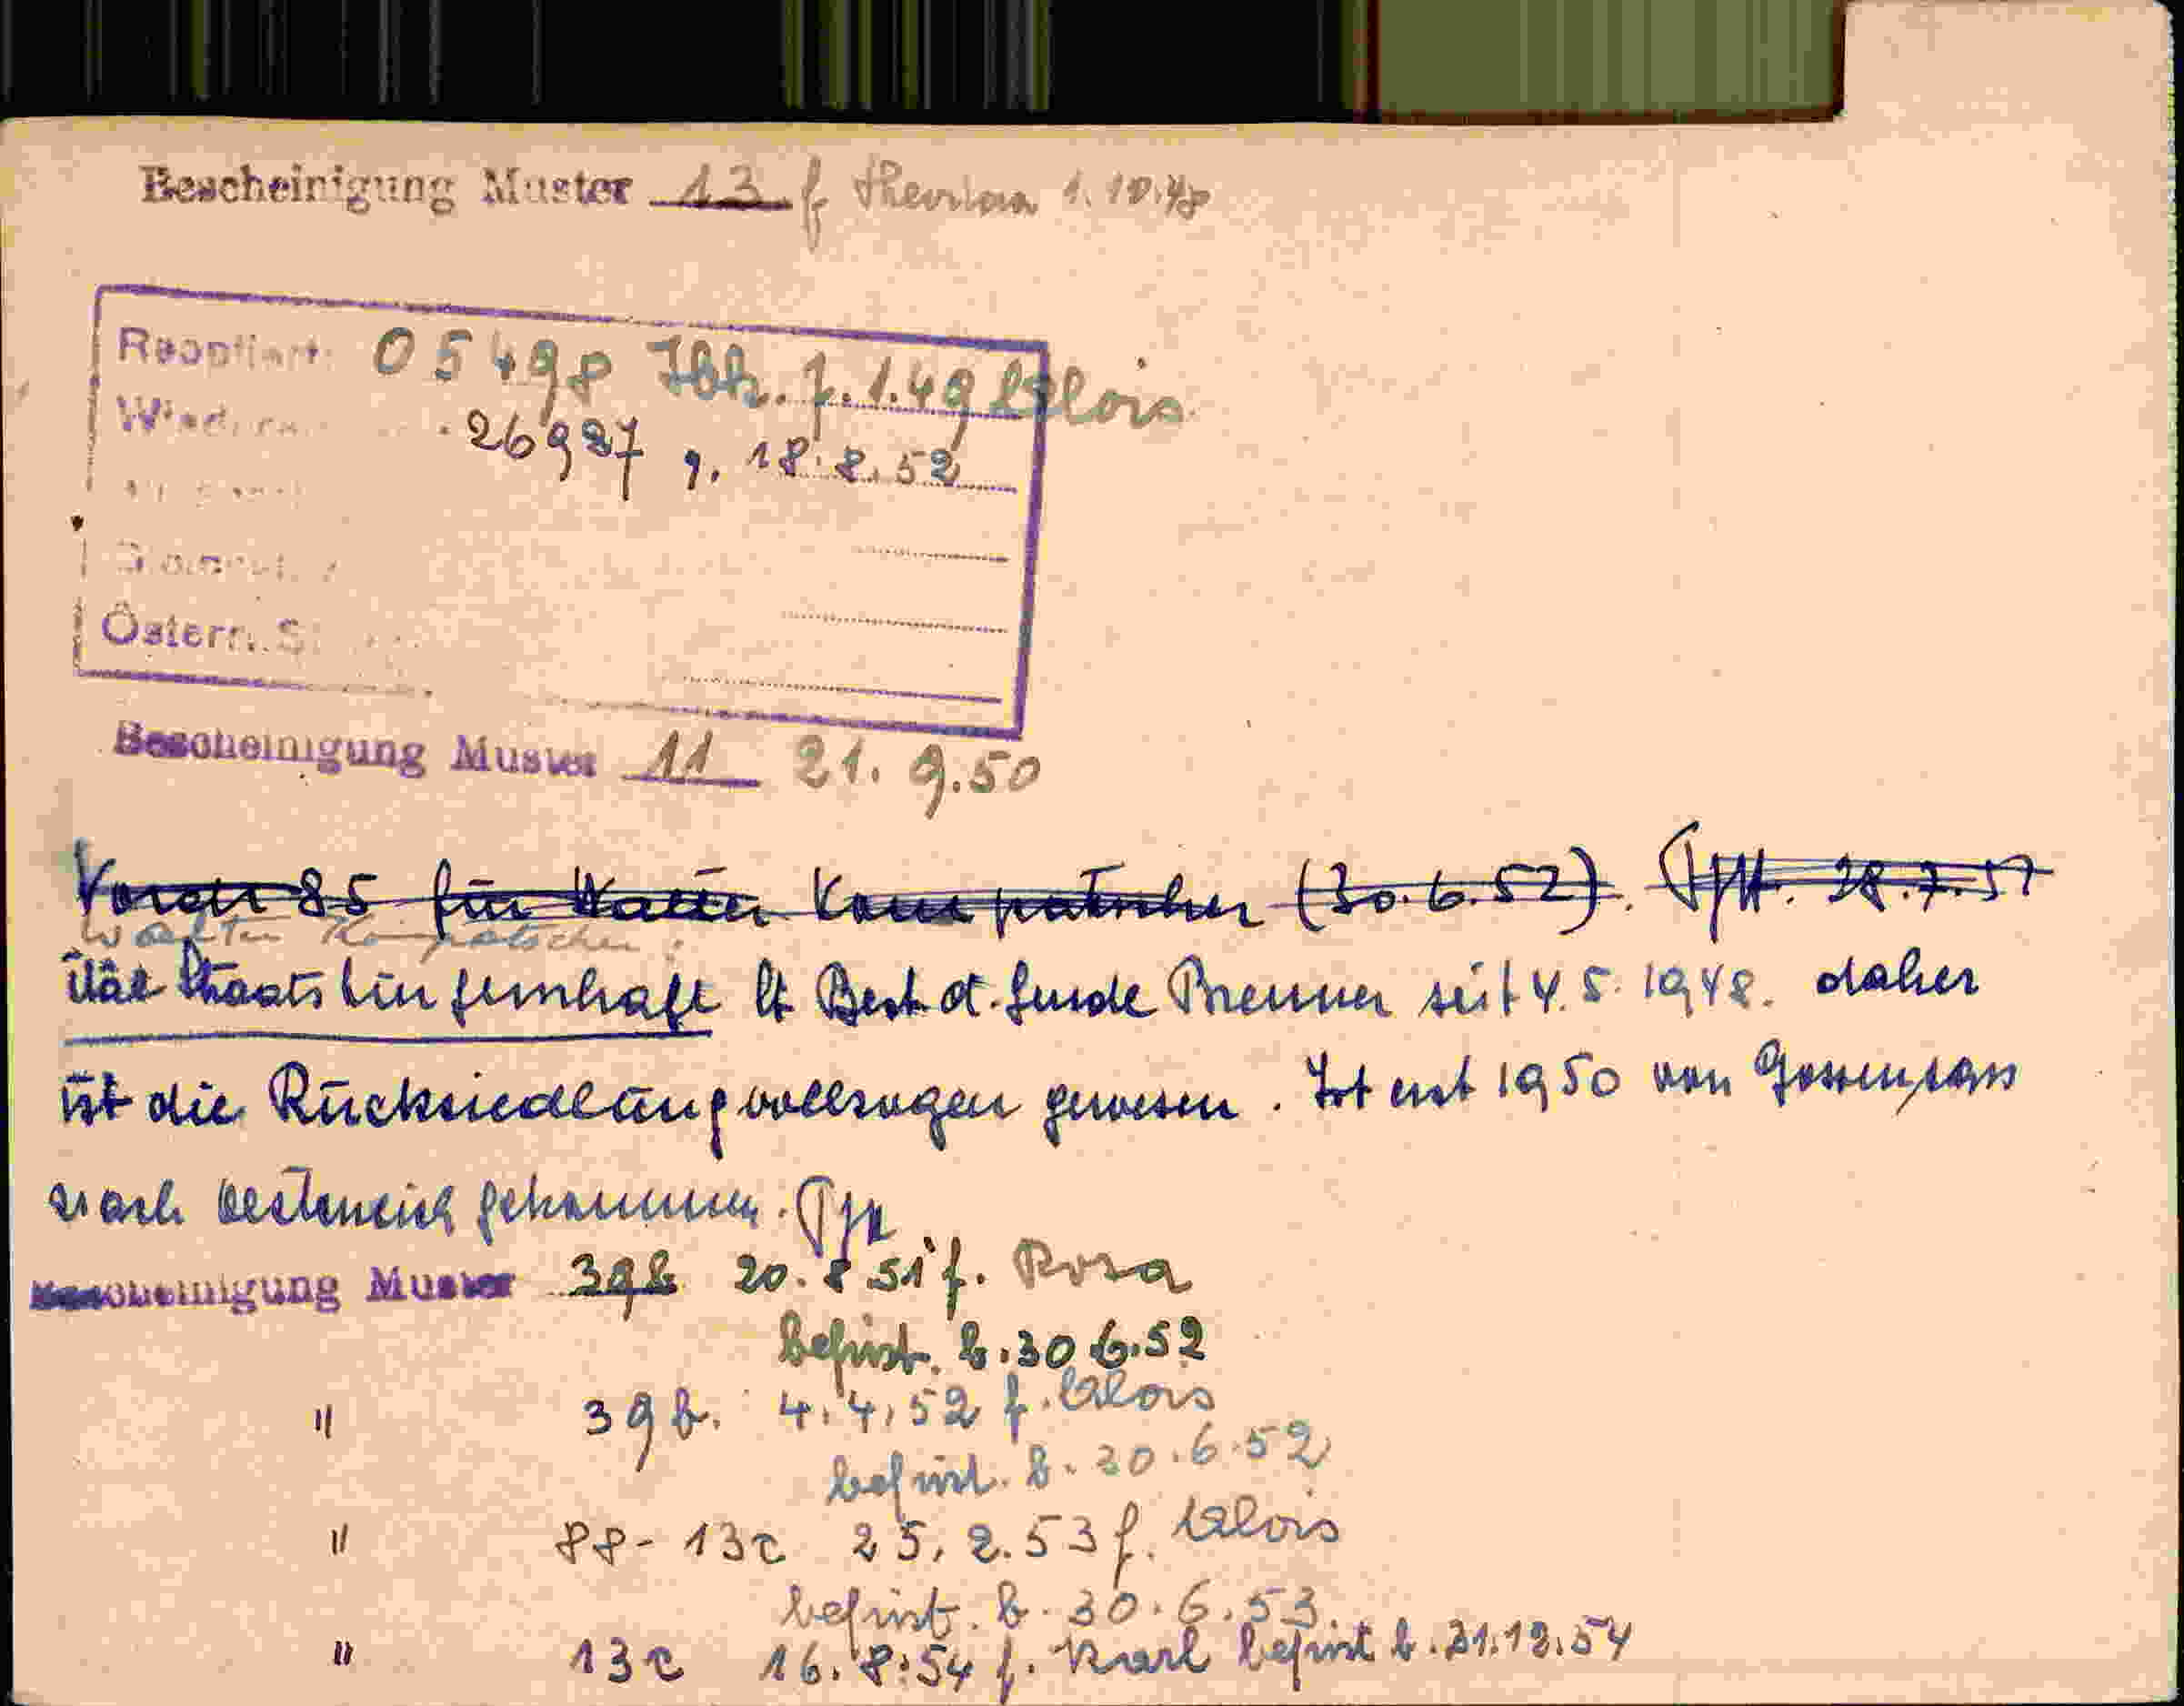 Bescheinigung Muster 13 f 1.10.48
Reoptiert: 05498 Ibk. 7.1.49 Alois
26927 v. 18.8.52
Österr. S
Bescheinigung Muster 11 21. 9.50
Vordr 85 für Walter Kompatscher (30.6.52). 28.7.51
Walter Kompatscher:
ital Staatsbürgerschaft lt Best d. Gemde Brenner seit 4.5.1948. daher
ist die Rücksiedlung vollzogen gewesen. Ist erst 1950 von Gossensass
nach Oesterreich gekommen.
Bescheinigung Muster 39b 20.8 51 f. Rosa
befrist. b. 30 6.52
" 39b. 4.4.52 f. Alois
befrist. b. 30.6.52
" 88- 13c 25.2.53 f. Alois
befrist. b. 30.6.53.
" 13c 16.8.54 f. Karl befrist b. 31.12.54